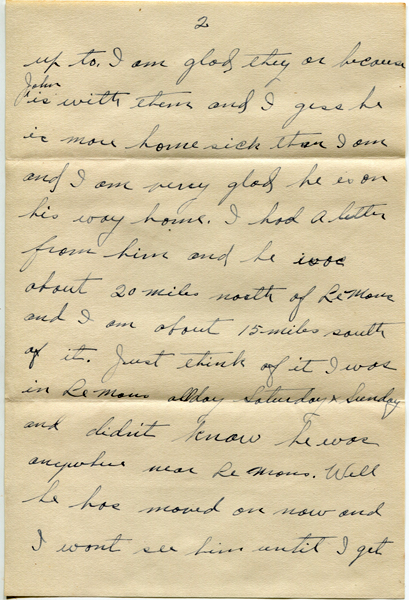 2
up to. I am glad they or because
John
is with them and I gess he
is more homesick than I am
and I am very glad he es on
his way home. I had a letter
from him and he was
about 20 miles north of Le Mans
and I am about 15 miles south
of it. Just think of it I was
in Le Mans allday Saturday & Sunday
and didn't know he was
anywhere near Le Mans. Well
he has moved on now and
I wont see him until I get